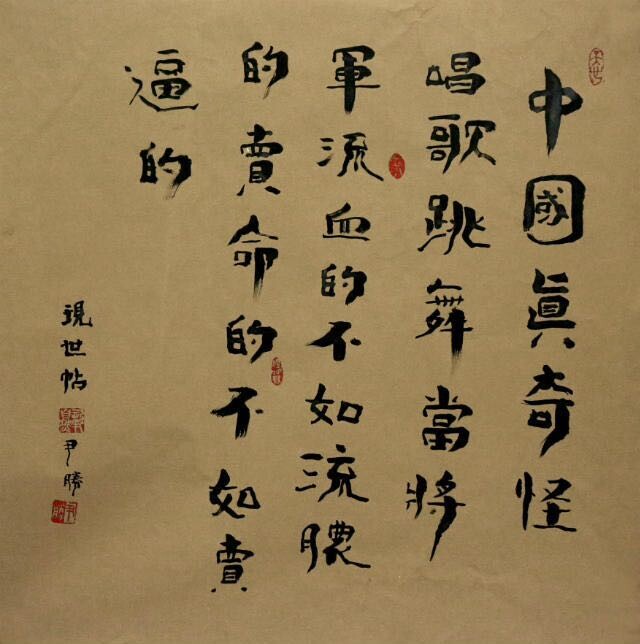 中國眞奇怪
唱歌跳舞當將
軍流血的不如流膿
的賣命的不如賣
逼的
現世帖
尹勝